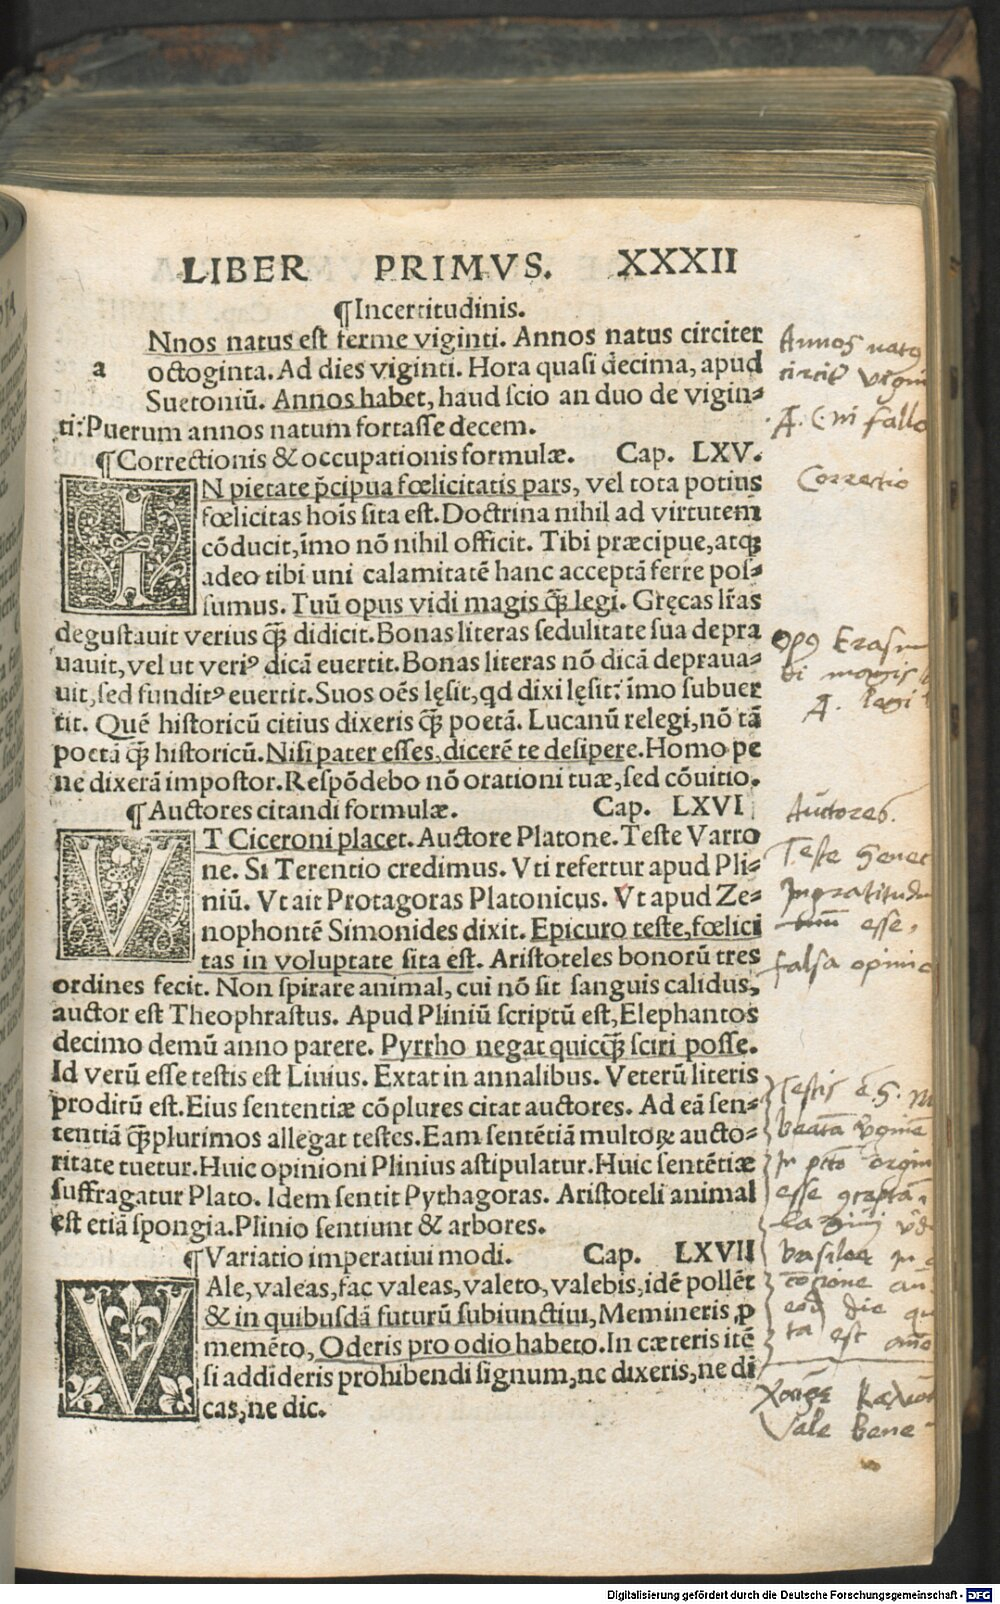 LIBER PRIMVS. XXXII
¶Incertitudinis.
a Nnos natus est ferme viginti. Annos natus circiter
octoginta. Ad dies viginti. Hora quasi decima, apud
Suetoniū. Annos habet, haud scio an duo de vigin⸗
ti: Puerum annos natum fortasse decem.
¶Correctionis & occupationis formulæ. Cap. LXV.
IN pietate p̄cipua fœlicitatis pars, vel tota potius
fœlicitas hoīs sita est. Doctrina nihil ad virtutem
cōducit, imo nō nihil officit. Tibi præcipue, atqꝫ
adeo tibi uni calamitatē hanc acceptā ferre pos⸗
sumus. Tuū opus vidi magis q̄ꝫ legi. Gręcas lr̄as
degustauit verius q̄ꝫ didicit. Bonas literas sedulitate sua depra
uauit, vel ut veriꝰ dicā euertit. Bonas literas nō dicā depraua⸗
uit, sed funditꝰ euertit. Suos oēs lęsit, qd dixi lęsit: imo subuer
tit. Quē historicū citius dixeris q̄ꝫ poetā. Lucanū relegi, nō tā
poetā q̄ꝫ historicū. Nisi pater esses, dicerē te desipere. Homo pe
ne dixerā impostor. Respōdebo nō orationi tuæ, sed cōuitio.
¶Auctores citandi formulæ. Cap. LXVI
VT Ciceroni placet. Auctore Platone. Teste Varro
ne. Si Terentio credimus. Vti refertur apud Pli⸗
niū. Vt ait Protagoras Platonicus. Vt apud Ze⸗
nophontē Simonides dixit. Epicuro teste, fœlici
tas in voluptate sita est. Aristoteles bonorū tres
ordines fecit. Non spirare animal, cui nō sit sanguis calidus,
auctor est Theophrastus. Apud Pliniū scriptū est, Elephantos
decimo demū anno parere. Pyrrho negat quicq̄ꝫ sciri posse.
Id verū esse testis est Liuius. Extat in annalibus. Veterū literis
proditū est. Eius sententiæ cōplures citat auctores. Ad eā sen⸗
tentiā q̄ꝫplurimos allegat testes. Eam sentētiā multoꝝ aucto⸗
ritate tuetur. Huic opinioni Plinius astipulatur. Huic sentētiæ
suffragatur Plato. Idem sentit Pythagoras. Aristoteli animal
est etiā spongia. Plinio sentiunt & arbores.
¶Variatio imperatiui modi. Cap. LXVII
VAle, valeas, fac valeas, valeto, valebis, idē pollēt
& in quibusdā futurū subiunctiui, Memineris, ꝓ
memēto, Oderis pro odio habeto. In cæteris itē
si addideris prohibendi signum, ne dixeris, ne di
cas, ne dic.
Annos natꝰ
fallo
Correctio
opꝰ
Auctores.
Teste
esse,
falsa opinio
Testis
esse
est
Vale bene
Digitalisierung gefördert durch die Deutsche Forschungsgemeinschaft - DFG